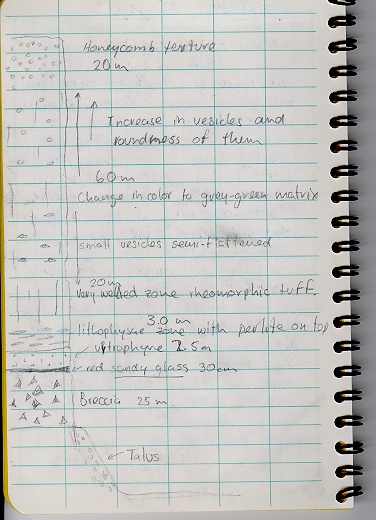 Honeycomb texture
20 m
Increase in vesicles and
roundness of them
60 m
Change in color to grey-green matrix
small vesicles semi-flattened
20 m
Very welded zone rheomorphic tuff
3.0 m
lithophysae zone with perlite on top
vitrophyre 2.5 m
red sandy glass 30 cm
Breccia 25 m
Talus